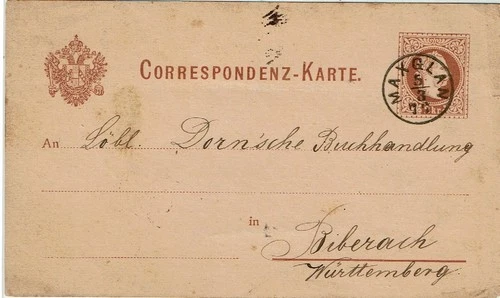 CORRESPONDENZ-KARTE.
MAXGLAN
5
3
78
An Löbl. Dorn'sche Buchhandlung
in Biberach
Württemberg